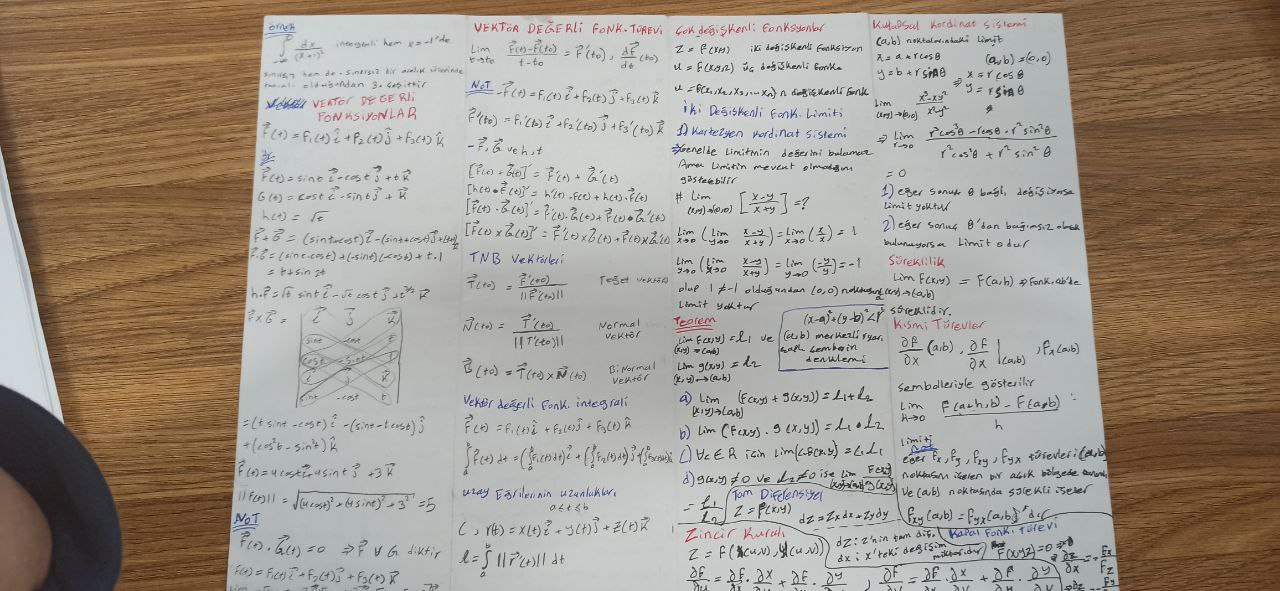 örnek
∫ dx/(x+1)² integrali hem x=-1'de
sınırsız hem de sınırsız bir aralık üzerinde
tanımlı olduğundan 3. çeşittir
VEKTÖR DEĞERLİ
FONKSİYONLAR
F⃗(t) = F₁(t) î + F₂(t) ĵ + F₃(t) k̂
F⃗(t) = sint i⃗ - cost j⃗ + t k⃗
G(t) = cost i⃗ - sint j⃗ + k⃗
h(t) = √t
F⃗.G⃗ = (sint.cost) + (sint)(cost) + t.1
= t + sin2t
h.F⃗ = √t sint i⃗ - √t cost j⃗ + t^3/2 k⃗
F⃗xG⃗ =
i⃗ j⃗ k⃗
sint -cost t
cost -sint 1
i⃗ j⃗ k⃗
sint -cost t
= (t sint - cost) i⃗ - (sint - t cost) j⃗
+ (cos²t - sin²t) k̂
F⃗(t) = 4 cost i⃗ - 4 sint j⃗ + 3 k⃗
||F(t)|| = √(4cost)² + (4sint)² + 3² = 5
NOT
F⃗(t) . G⃗(t) = 0 ⇒ F⃗ ∀ G diktir
F(t) = F₁(t) i⃗ + F₂(t) j⃗ + F₃(t) k⃗
VEKTÖR DEĞERLİ FONK. TÜREVİ
Lim t→t₀ F⃗(t)-F⃗(t₀) / t-t₀ = F⃗'(t₀), dF⃗/dt (t₀)
NOT
-F⃗(t) = F₁(t) i⃗ + F₂(t) j⃗ + F₃(t) k⃗
F⃗'(t₀) = F₁'(t₀) i⃗ + F₂'(t₀) j⃗ + F₃'(t₀) k⃗
- F⃗, G⃗ ve h, t
[F⃗(t) + G⃗(t)]' = F⃗'(t) + G⃗'(t)
[h(t)•F⃗(t)]' = h'(t).F(t) + h(t).F⃗(t)
[F⃗(t).G⃗(t)]' = F⃗'(t).G⃗(t) + F⃗(t)•G⃗'(t)
[F⃗(t)xG⃗(t)]' = F⃗'(t)xG⃗(t) + F⃗(t)xG⃗'(t)
TNB Vektörleri
T⃗(t₀) = F⃗'(t₀) / ||F⃗'(t₀)|| Teğet vektörü
N⃗(t₀) = T⃗'(t₀) / ||T'(t₀)|| Normal vektör
B⃗(t₀) = T⃗(t₀) x N⃗(t₀) Binormal vektör
Vektör değerli Fonk. integrali
F⃗(t) = F₁(t) i⃗ + F₂(t) j⃗ + F₃(t) k⃗
∫ F⃗(t) dt = (∫F₁(t)dt) i⃗ + (∫F₂(t)dt) j⃗ + (∫F₃(t)dt) k⃗
uzay Eğrilerinin uzunlukları
a≤t≤b
C, r(t) = x(t) i⃗ + y(t) j⃗ + z(t) k⃗
l = ∫ ||r⃗'(t)|| dt
Çok değişkenli Fonksiyonlar
Z = F(x,y) iki değişkenli fonksiyon
u = F(x,y,z) üç değişkenli fonk.
u = F(x₁,x₂,x₃,...,xₙ) n değişkenli Fonk
İki Değişkenli Fonk. Limiti
1) Kartezyen kordinat sistemi
⇒ Genelde Limitinin değerini bulamaz
Ama Limitin mevcut olmadığını
gösterebilir
# Lim (x,y)→(0,0) [x-y / x+y] = ?
Lim x→0 (Lim y→0 x-y/x+y) = Lim x→0 (x/x) = 1
Lim y→0 (Lim x→0 x-y/x+y) = Lim y→0 (-y/y) = -1
olup 1 ≠ -1 olduğundan (0,0) noktasında
Limit yoktur
Teorem
Lim F(x,y) = L₁ ve
(x,y)→(a,b)
Lim g(x,y) = L₂
(x,y)→(a,b)
(x-a)²+(y-b)²<r²
(a,b) merkezli r yarı
çaplı çemberin
denklemi
a) Lim (F(x,y) + g(x,y)) = L₁ + L₂
(x,y)→(a,b)
b) Lim (F(x,y) . g(x,y)) = L₁ • L₂
c) ∀c∈R için Lim(c.F(x,y)) = c.L₁
d) g(x,y) ≠ 0 ve L₂ ≠ 0 ise Lim F(x,y)/g(x,y)
= L₁/L₂
Tam Diferensiyel
Z = F(x,y)
dz = Zxdx + Zydy
dz: z'nin tam dif.
dx: x'teki değişim
miktarıdır
Zincir Kuralı
Z = F(x(u,v), y(u,v))
∂F/∂u = ∂F/∂x . ∂x/∂u + ∂F/∂y . ∂y/∂u ; ∂F/∂v = ∂F/∂x . ∂x/∂v + ∂F/∂y . ∂y/∂v
Kutupsal kordinat sistemi
(a,b) noktalarındaki limit
x = a + rcosθ (a,b) = (0,0)
y = b + rsinθ ⇒ x = rcosθ
y = rsinθ
Lim (x,y)→(0,0) x³-xy² / x²y²
⇒ Lim r→0 r³cos³θ - rcosθ . r²sin²θ / r²cos²θ + r²sin²θ
= 0
1) eğer sonuç θ bağlı, değişiyorsa
Limit yoktur
2) eğer sonuç θ'dan bağımsız olarak
bulunuyorsa Limit odur
Süreklilik
Lim F(x,y) = F(a,b) ⇒ Fonk. a,b'de
(x,y)→(a,b)
süreklidir.
Kısmi Türevler
∂F/∂x (a,b), ∂F/∂x |(a,b), Fx(a,b)
sembolleriyle gösterilir
Lim h→0 F(a+h,b) - F(a,b) / h
Limiti
Not
eğer Fx, Fy, Fxy, Fyx türevleri (a,b)
noktasını içeren bir açık bölgede tanımlı
ve (a,b) noktasında sürekli iseler
Fxy(a,b) = Fyx(a,b)'dir
Kapalı Fonk. Türevi
F(x,y,z) = 0 ⇒ ∂z/∂x = -Fx/Fz